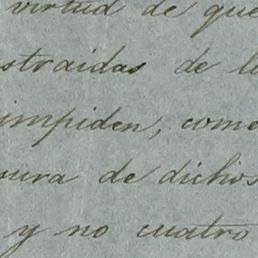 virtud de que
straidas de l
impiden, come
sura de dichos
y no cuatro